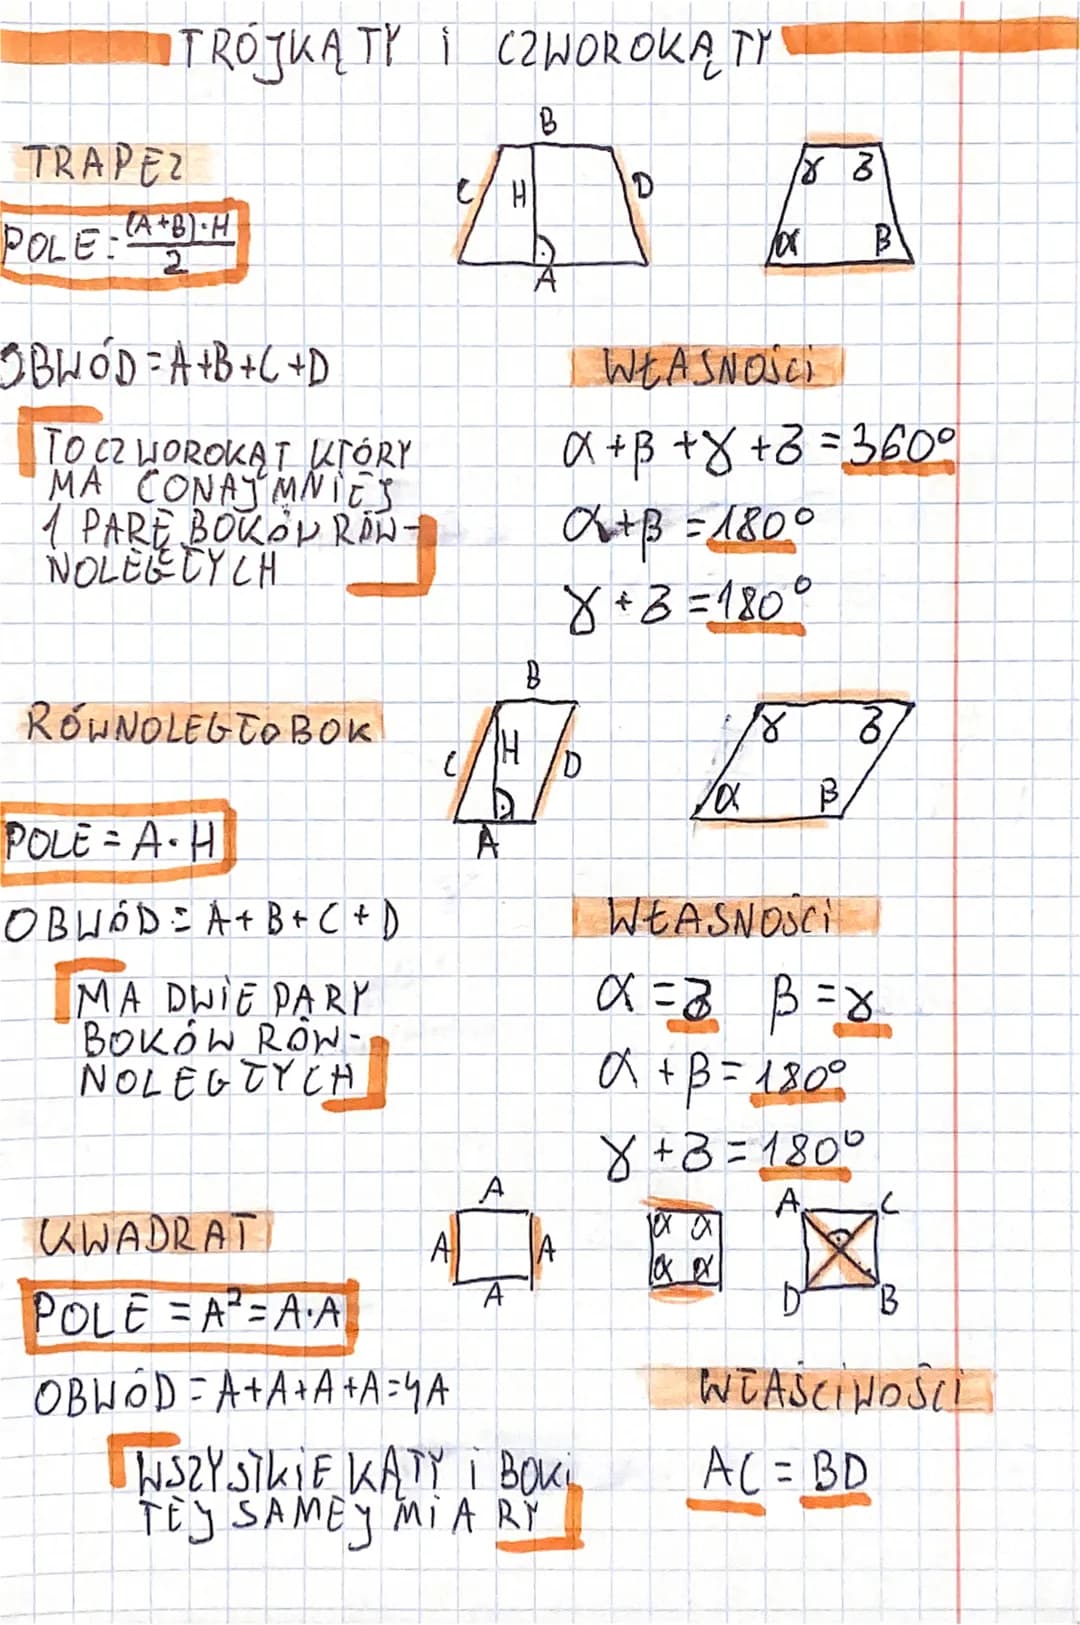 TRÓJKĄTY i CZWOROKĄTY
TRAPEZ
POLE = (A+B)·H / 2
B
C H D
A
γ δ
α β
OBWÓD = A+B+C+D
WŁASNOŚCi
TO CZWOROKĄT KTÓRY
MA CONAJMNIEJ
1 PARĘ BOKÓW RÓW-
NOLEGŁYCH
α+β+γ+δ = 360°
α+β = 180°
γ+δ = 180°
RÓWNOLEGŁOBOK
B
C H D
A
γ δ
α β
POLE = A·H
OBWÓD = A+B+C+D
WŁASNOŚCi
MA DWiE PARY
BOKÓW RÓW-
NOLEGŁYCH
α = δ β = γ
α + β = 180°
γ + δ = 180°
KWADRAT
A
A A
A
α α
α α
A C
D B
POLE = A² = A·A
OBWÓD = A+A+A+A=4A
WŁAŚCiWOŚCi
WSZYSTKiE KĄTY i BOKi
TEJ SAMEJ MiARY
AC = BD